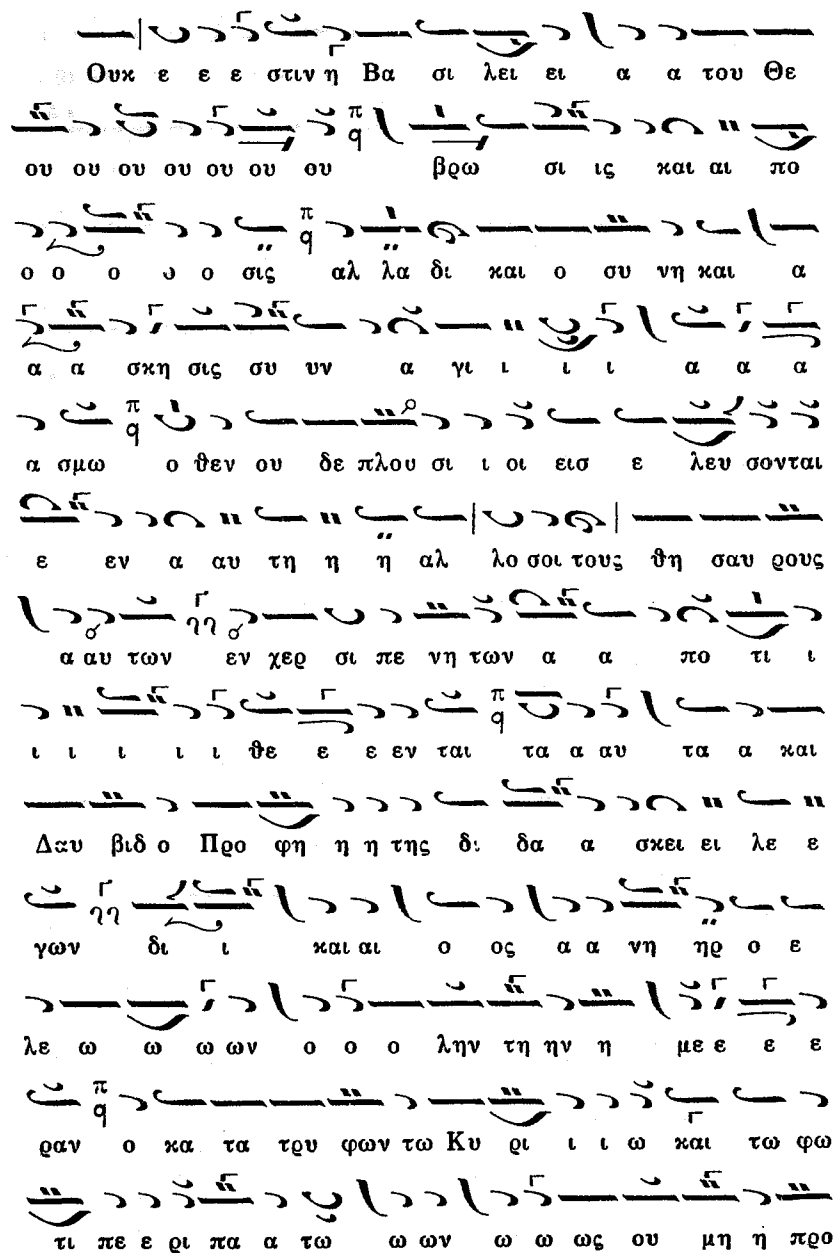 Ουκ ε ε ε στιν η Βα σι λει ει α α του Θε
ου ου ου ου ου ου ου βρω σι ις και αι πο
ο ο ο ο ο σις αλ λα δι και ο συ νη και α
α α σκη σις συ υν α γι ι ι ι α α α
α σμω ο θεν ου δε πλου σι ι οι εισ ε λευ σονται
ε εν α αυ τη η η αλ λο σοι τους θη σαυ ρους
α αυ των εν χερ σι πε νη των α α πο τι ι
ι ι ι ι ι θε ε ε εν ται τα α αυ τα α και
Δαυ βιδ ο Προ φη η η της δι δα α σκει ει λε ε
γων δι ι και αι ο ος α α νη ηρ ο ε
λε ω ω ω ων ο ο ο λην τη ην η με ε ε ε
ραν ο κα τα τρυ φων τω Κυ ρι ι ι ω και τω φω
τι πε ε ρι πα α τω ω ων ω ω ως ου μη η προ